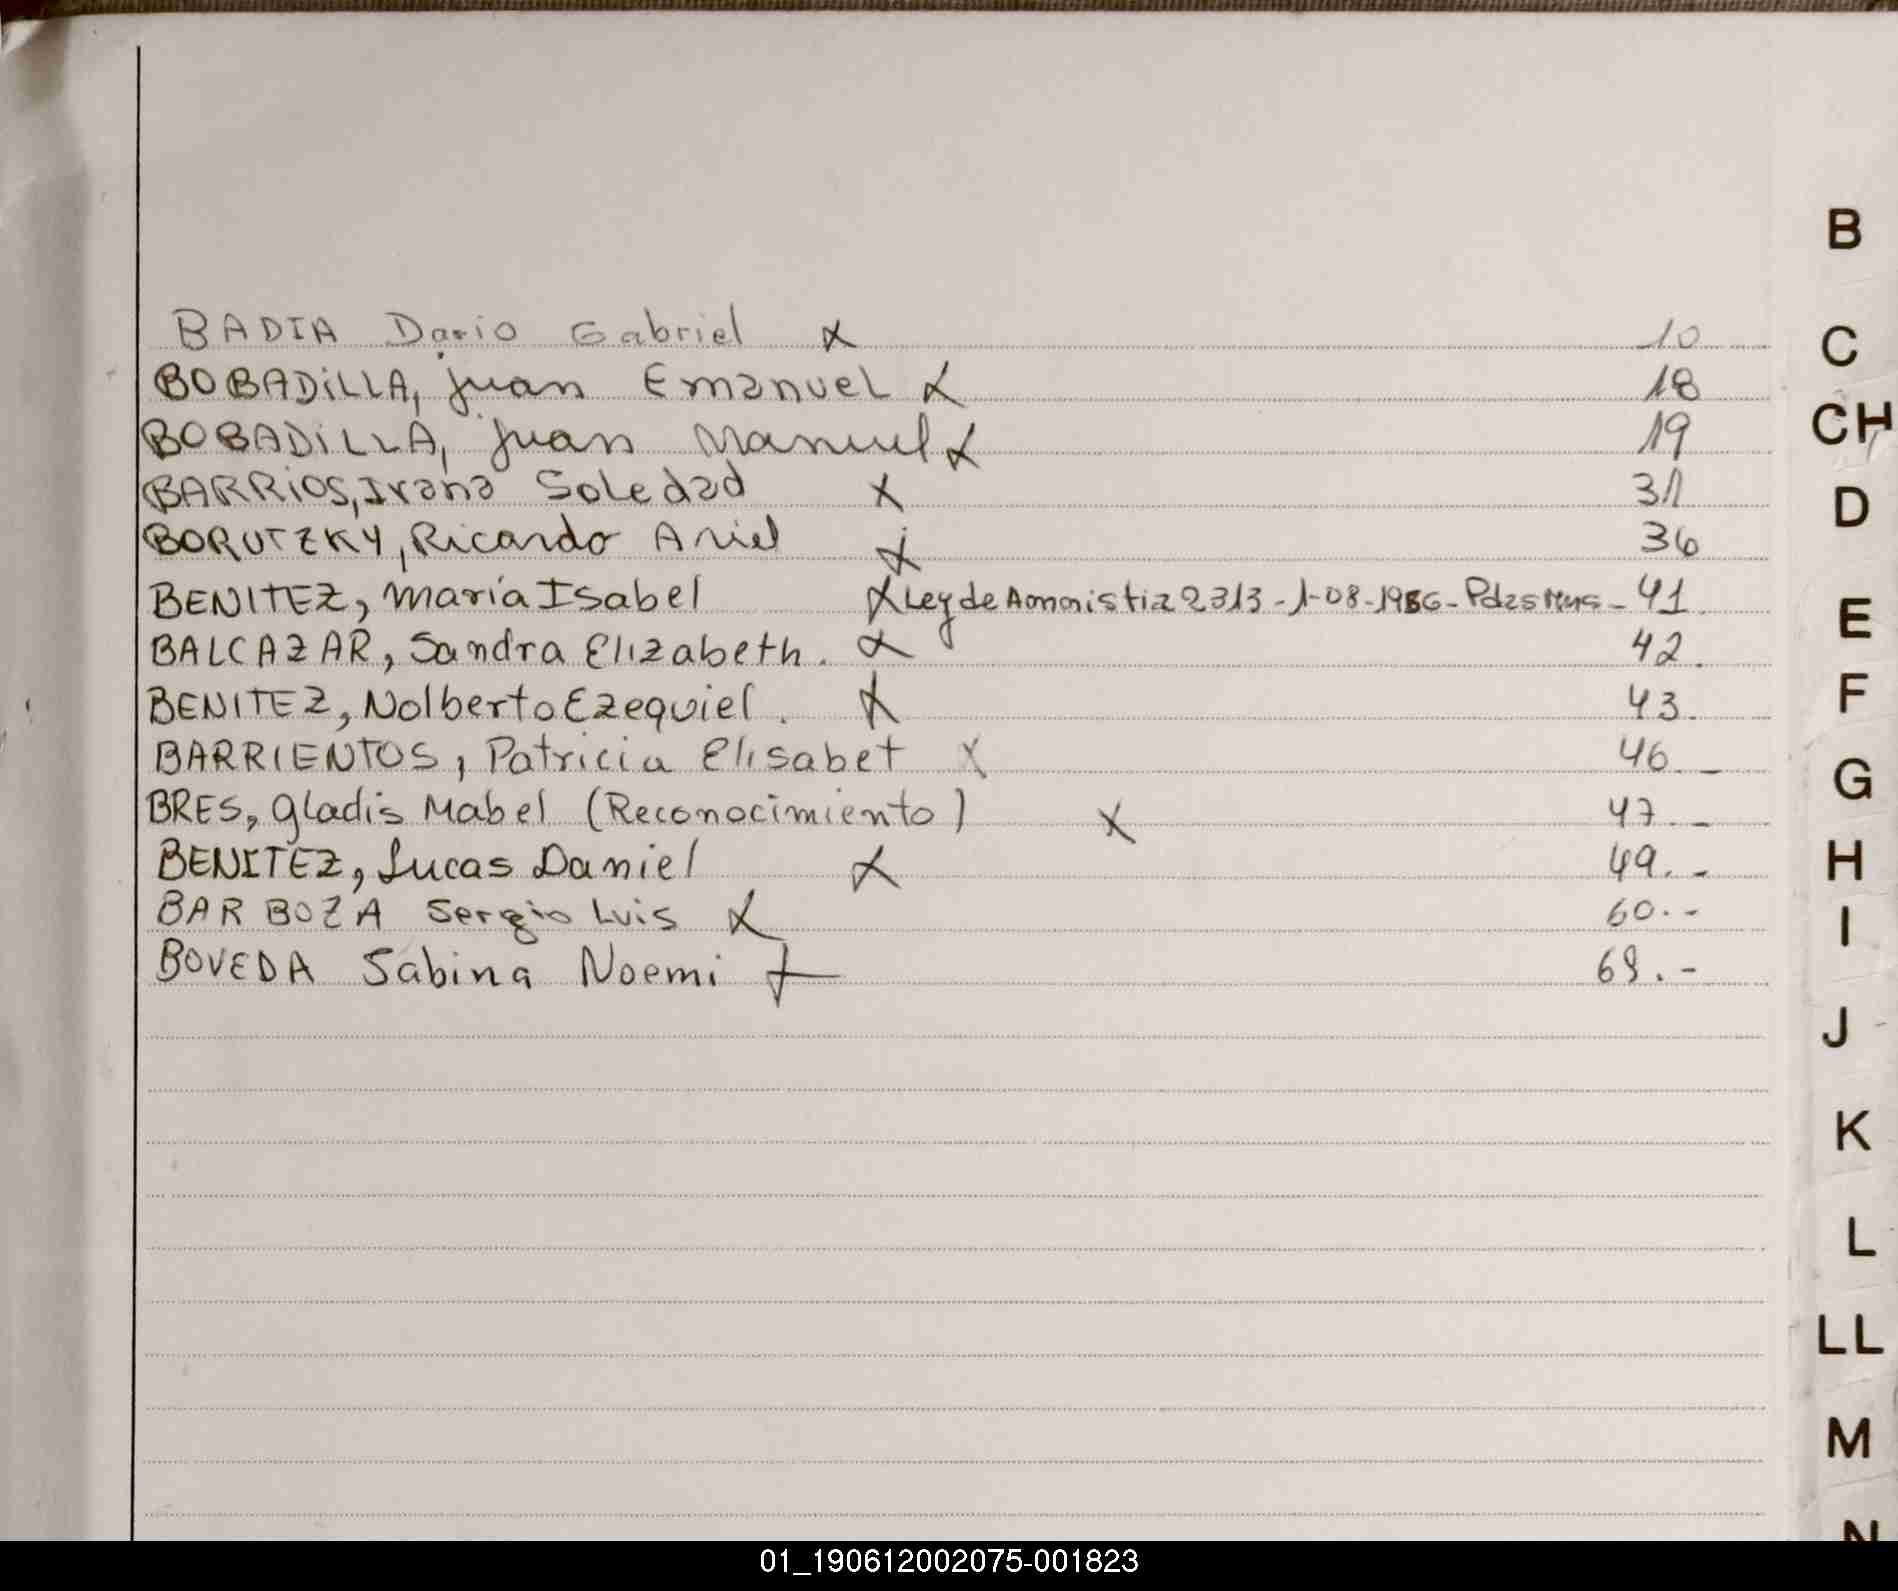 BADIA Dario Gabriel X 10
BOBADiLLA, Juan Emanuel X 18
BOBADiLLA, Juan Manuel X 19
BARRiOS, Ivana Soledad X 31
BORUTZKY, Ricardo Ariel X 36
BENITEZ, María Isabel X Ley de Amnistia 2313-1-08-1986- 41.
BALCAZAR, Sandra Elizabeth. X 42.
BENITEZ, Nolberto Ezequiel. X 43.
BARRIENTOS, Patricia Elisabet X 46.-
BRES, Gladis Mabel (Reconocimiento) X 47.-
BENITEZ, Lucas Daniel X 49.-
BARBOZA Sergio Luis X 60.-
BOVEDA Sabina Noemi X .-
B
C
CH
D
E
F
G
H
I
J
K
L
LL
M
N
01_190612002075-001823